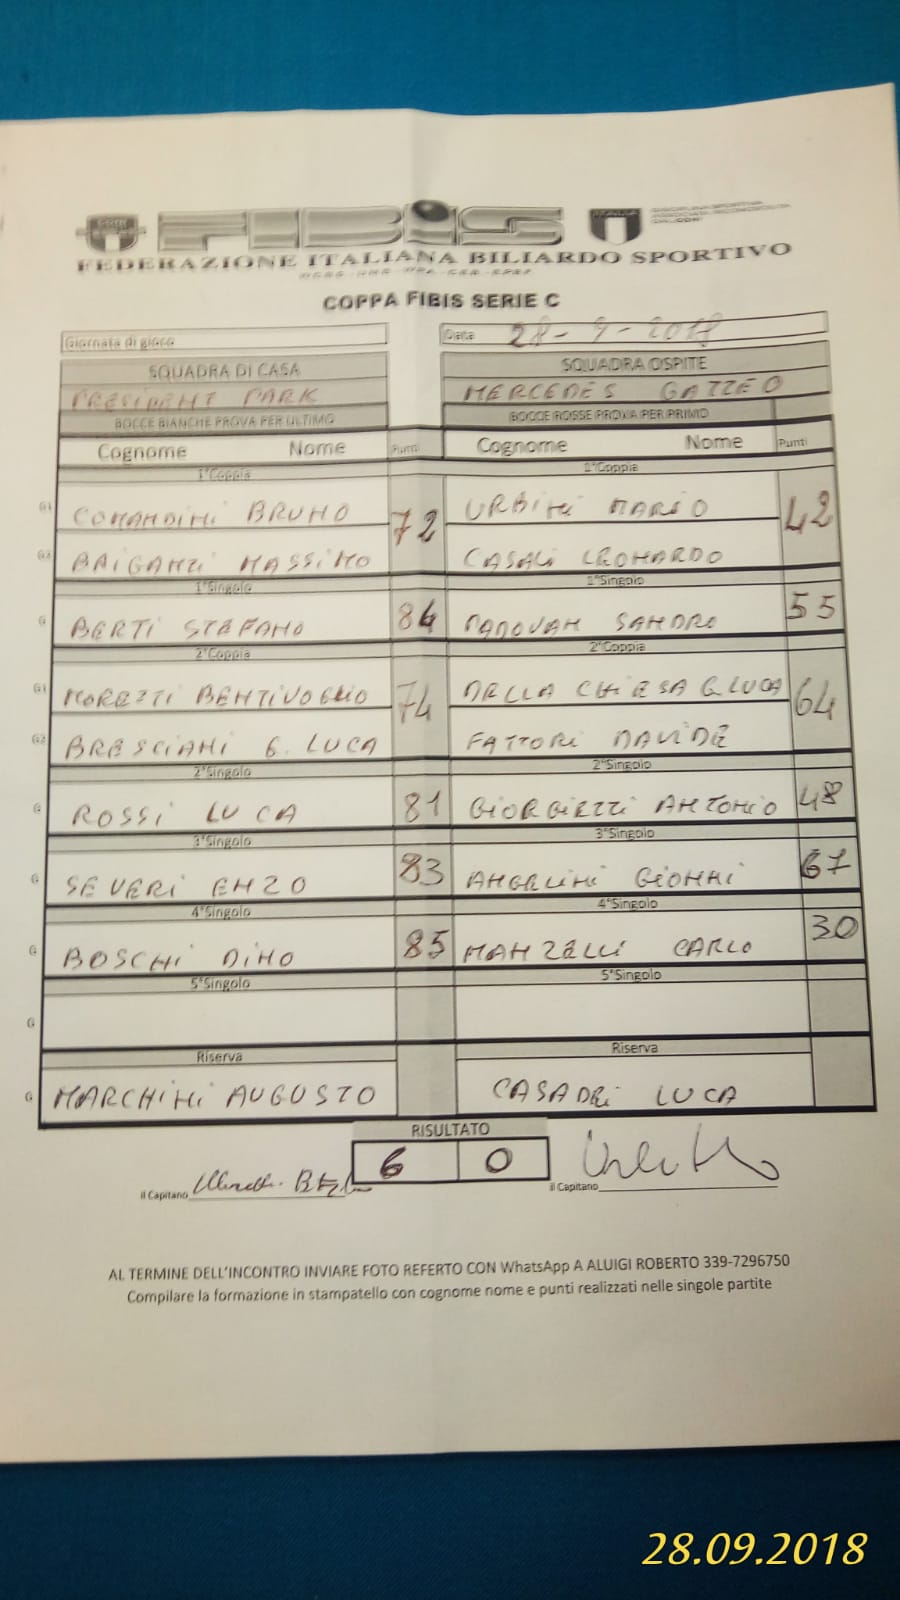 FIBiS
FEDERAZIONE ITALIANA BILIARDO SPORTIVO
COPPA FIBIS SERIE C
Giornata di gioco Data 28-9-2018
SQUADRA DI CASA SQUADRA OSPITE
PRESIDENT PARK MERCEDES GATTEO
BOCCE BIANCHE PROVA PER ULTIMO BOCCE ROSSE PROVA PER PRIMO
Cognome Nome Punti Cognome Nome Punti
1°Coppia 1°Coppia
G1 COMANDINI BRUNO 72 URBINI MARIO 42
G2 BAIGANZI MASSIMO CASALI LEONARDO
1°Singolo 1°Singolo
G BERTI STEFANO 84 PADOVAN SANDRO 55
2°Coppia 2°Coppia
G1 MORETTI BENTIVOGLIO 74 DELLA CHIESA G.LUCA 64
G2 BRESCIANI G. LUCA FATTORI DAVIDE
2°Singolo 2°Singolo
G ROSSI LUCA 81 GIORGIETTI ANTONIO 48
3°Singolo 3°Singolo
G SEVERI ENZO 83 ANGELINI GIONNI 67
4°Singolo 4°Singolo
G BOSCHI DINO 85 MANZELLI CARLO 30
5°Singolo 5°Singolo
G
Riserva Riserva
G MARCHINI AUGUSTO CASADEI LUCA
RISULTATO
6 0
il Capitano il Capitano
AL TERMINE DELL'INCONTRO INVIARE FOTO REFERTO CON WhatsApp A ALUIGI ROBERTO 339-7296750
Compilare la formazione in stampatello con cognome nome e punti realizzati nelle singole partite
28.09.2018